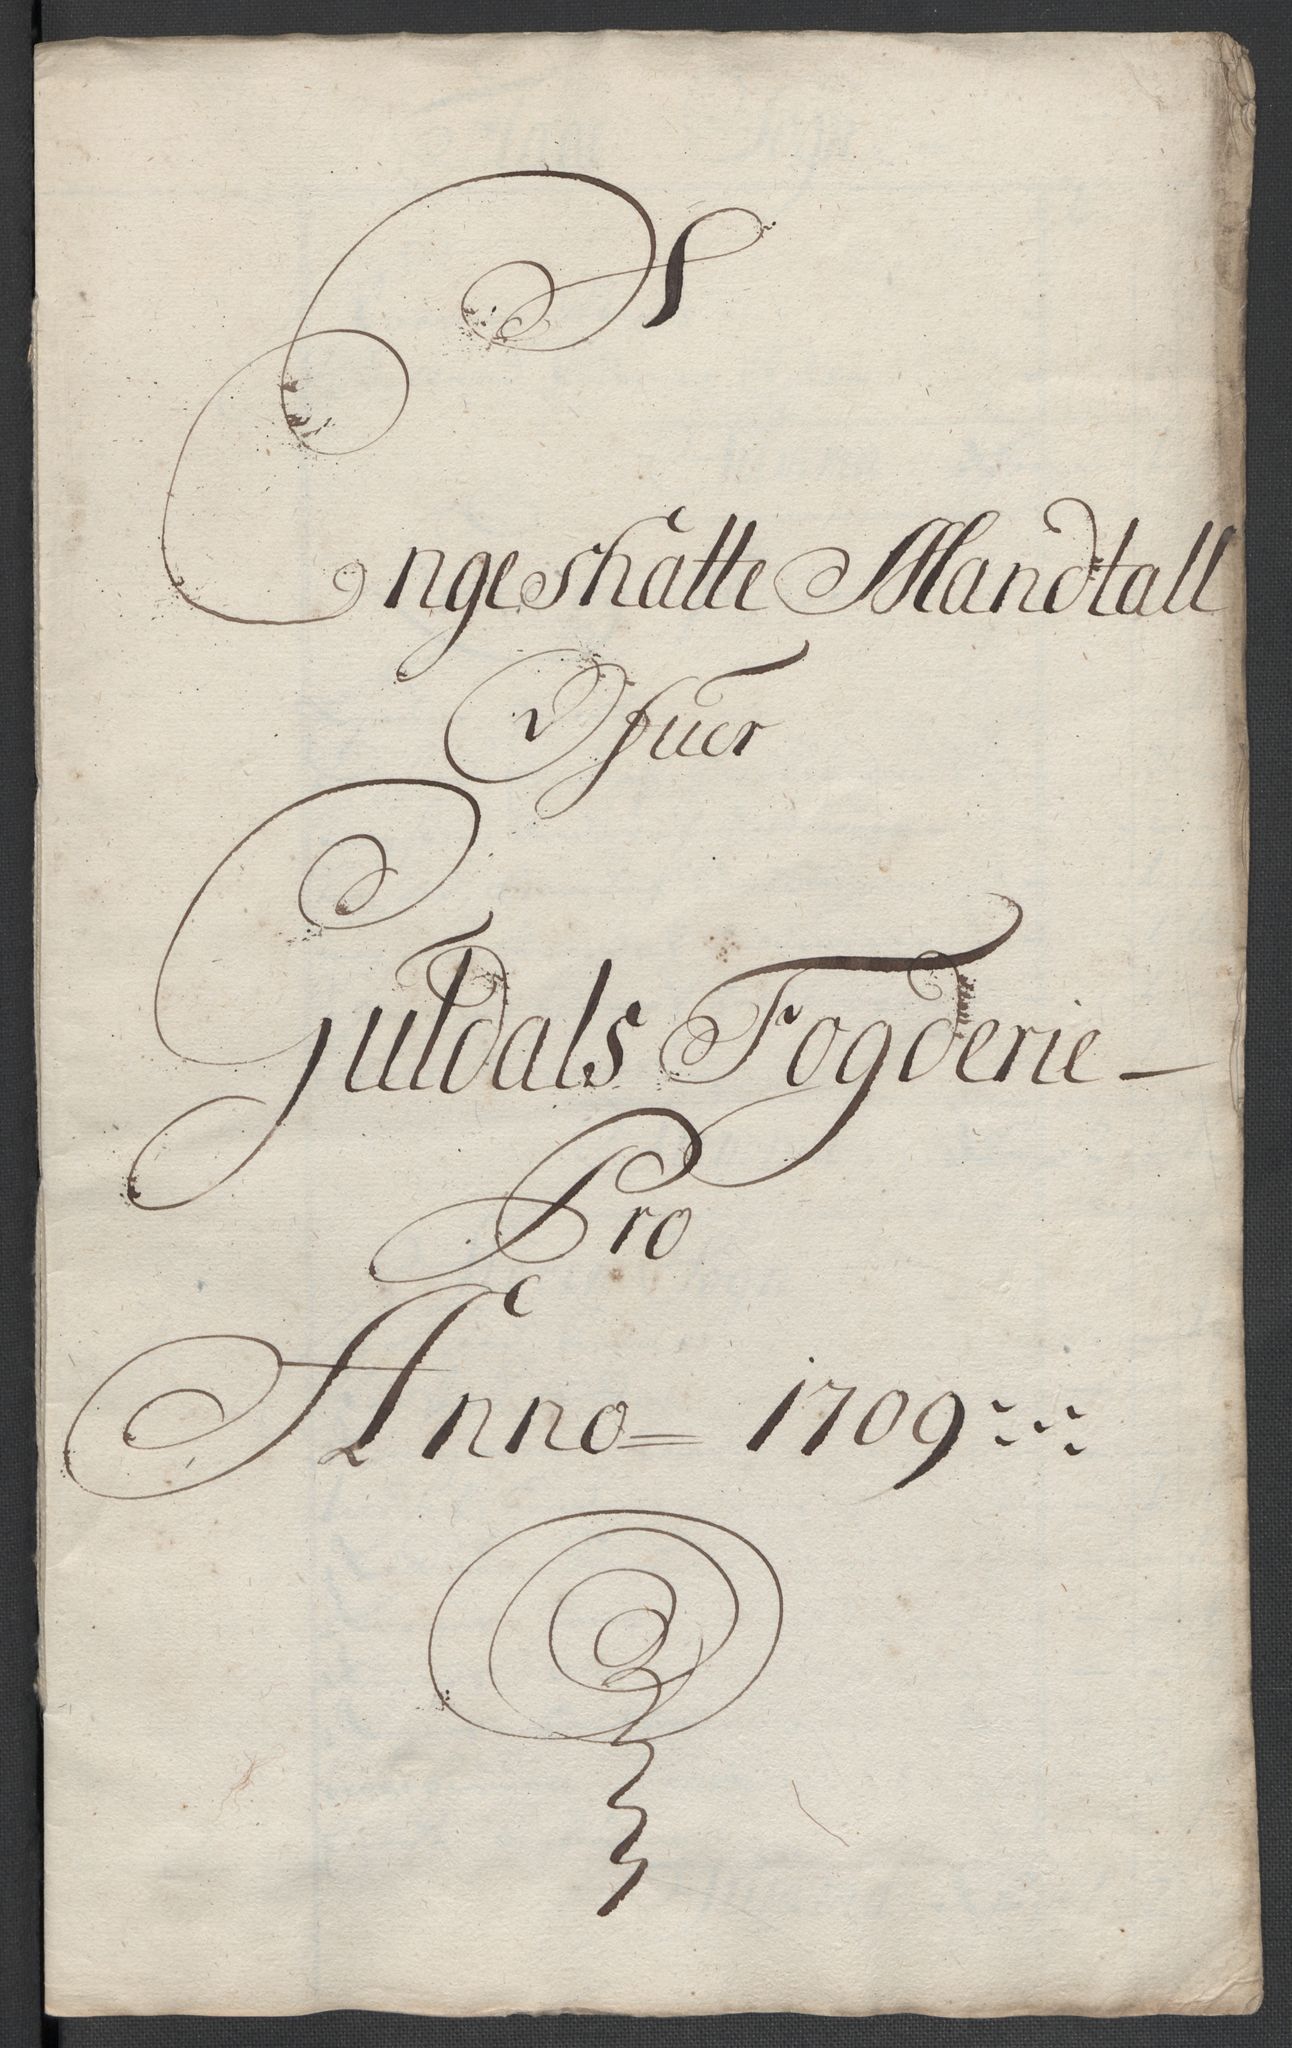 S
Engeskatte Mandtall
Ofuer
Guldals Fogderie
Pro
Anno 1709